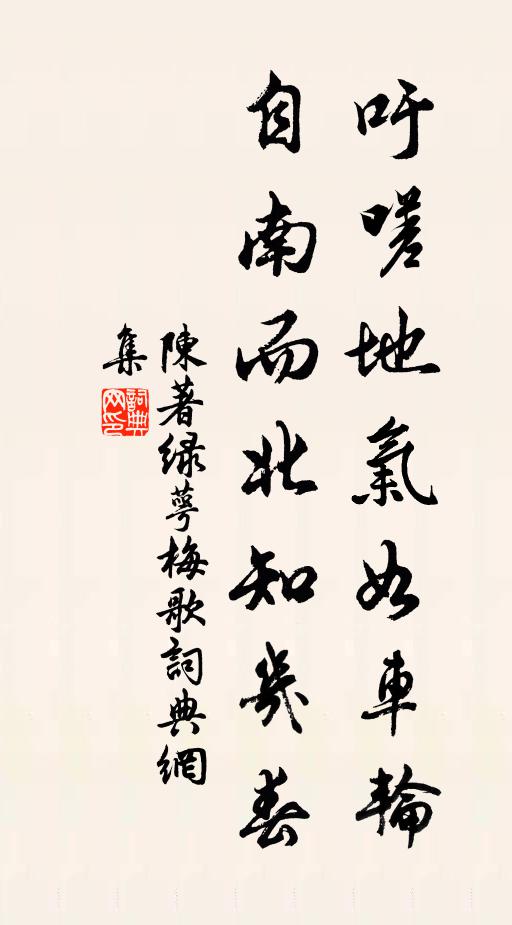 吁嗟地氣如車輪
自南而北知幾春
陳著綠萼梅歌詞典網
集
詞典
网印